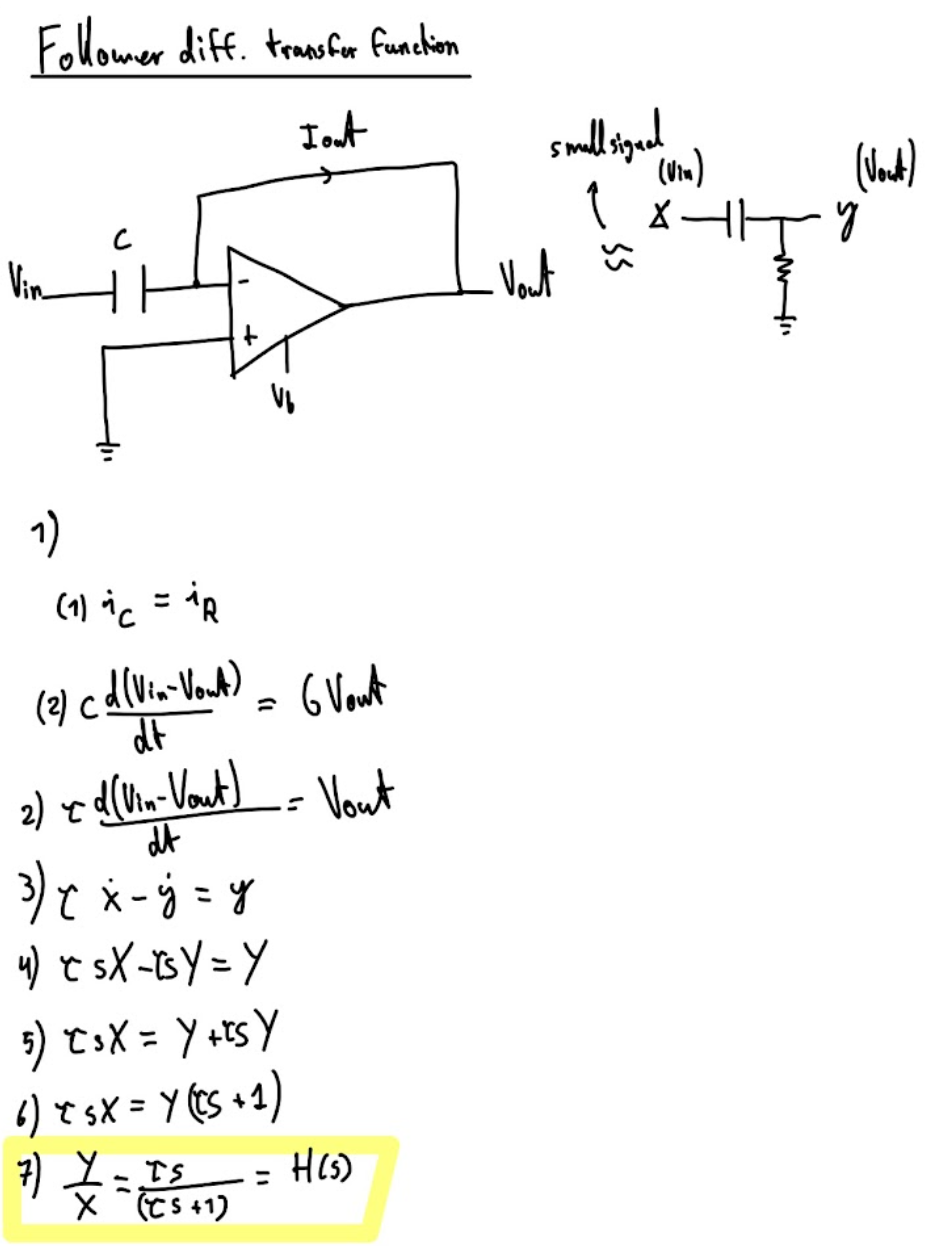 Follower diff. transfer function
Iout
small signal
(Vin)
(Vout)
C
X
y
≈
Vin
-
Vout
+
Vb
1)
(1) i_C = i_R
(2) C d(Vin-Vout)/dt = G Vout
2) τ d(Vin-Vout)/dt = Vout
3) τ ẋ - ẏ = y
4) τsX-τsY = Y
5) τsX = Y+τsY
6) τsX = Y(τs+1)
7) Y/X = τs/(τs+1) = H(s)